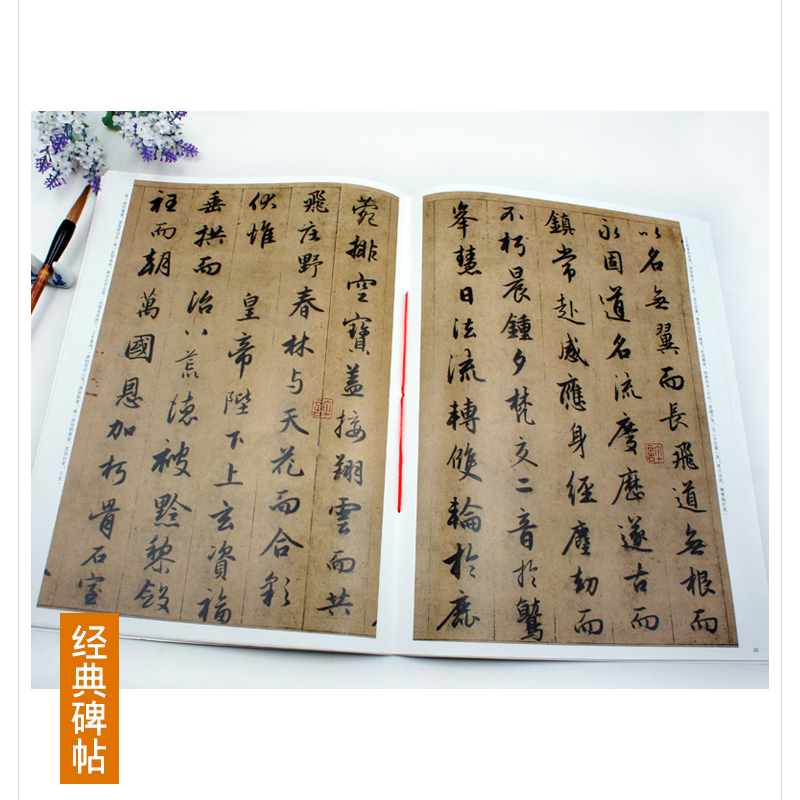 以名無翼而長飛道無根而
永固道名流慶歷遂古而
鎮常赴感應身經塵劫而
不朽晨鍾夕梵交二音於鷲
峯慧日法流轉雙輪於鹿
菀排空寶蓋接翔雲而共
飛庄野春林与天花而合彩
伏惟 皇帝陛下上玄資福
垂拱而治八荒德被黔黎斂
衽而朝萬國恩加朽骨石室
经典碑帖